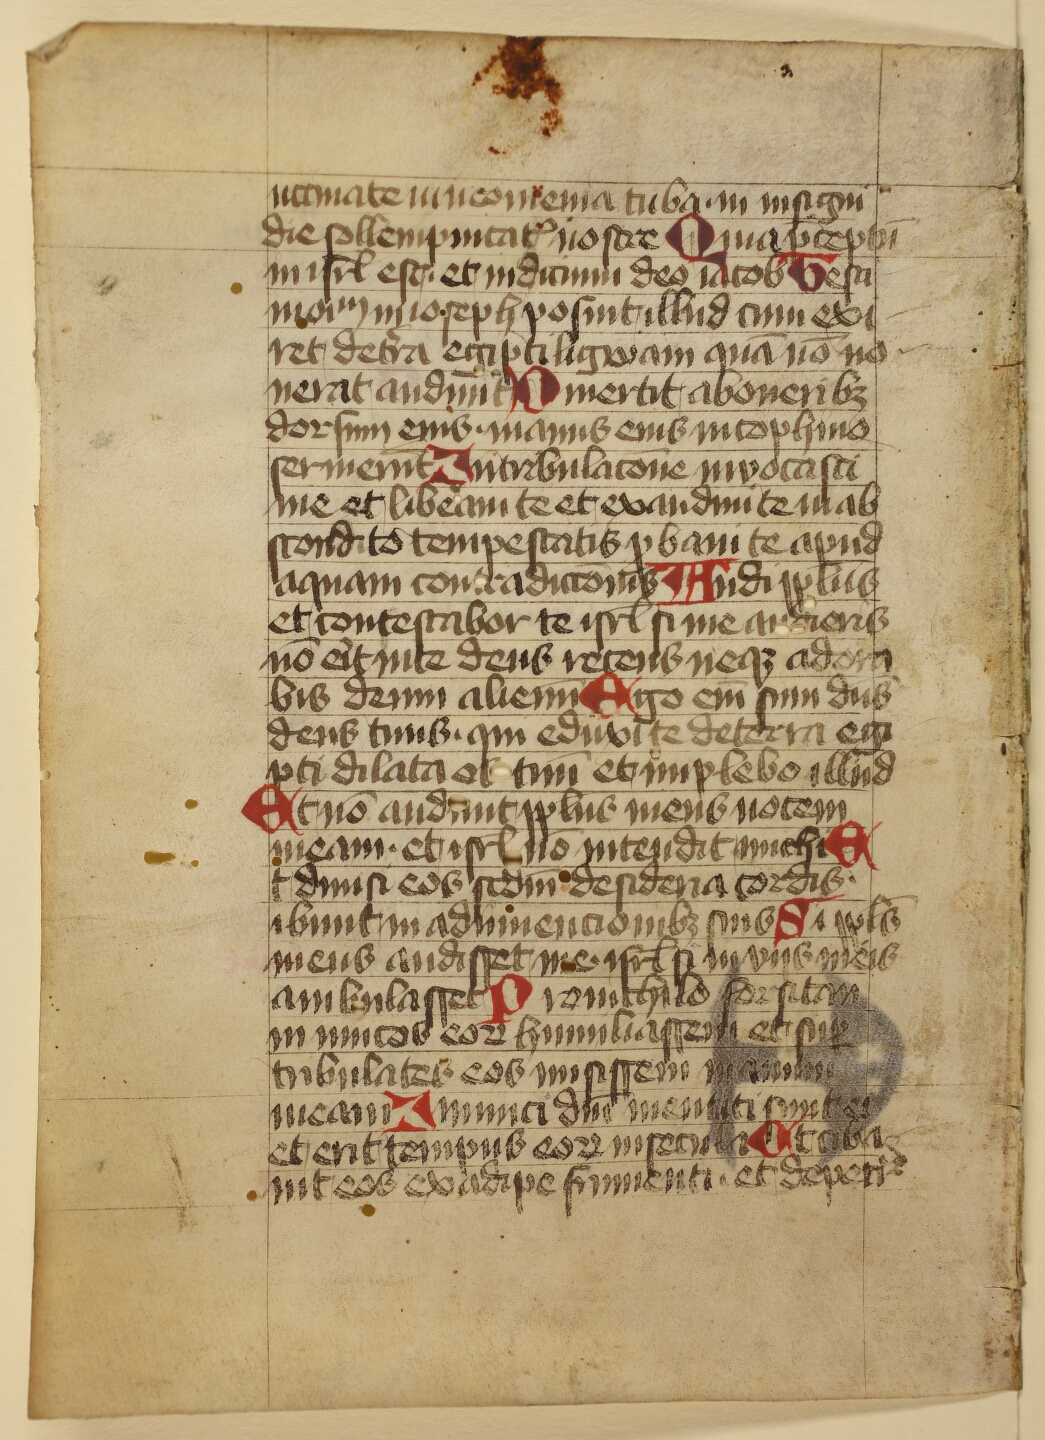 uccinate in neomenia tuba · in insigni
die sollempnitat᷒ nostre Quia p̄ceptū
in isrl̄ est · et iudicium deo iacob Testi
moiūm in ioseph posuit illud cum exi
ret de tr̄ra egipti ligwam quā nō no
uerat audiuit Diuertit ab oneribꝫ
dorsum eius · manus eius in cophino
seruierūt In tribulacōne inuocasti
me et liberaui te et exaudiui te in ab
scondito tempestatis pbaui te apud
aquam contradictōnis Audi ppl̄us
et contestabor te isrl̄ si me audieris
nō erit in te deus recens neqꝫ adora
bis deum alienū Ego em̄ sum dn̄s
deus tuus · qui eduxi te de terra egi
pti dilata os tuū et implebo illud
Et nō audiuit ppl̄us meus uocem
meam · et isrl̄ nō intendit michi E
t dimisi eos scdm̄ desideria cordis ·
ibunt in adinuencionibꝫ suis Si ppl̄s
meus audisset me · isrl̄ si in viis meis
ambulasset Pro nichilo forsitan
inimicos eoꝝ humiliassem et sup̄
tribulātes eos misissem manum
meam Inimici dn̄i mentiti sunt ei
et erit tempus eoꝝ in secula Et ciba
uit eos ex adipe frumenti · et de petr᷒